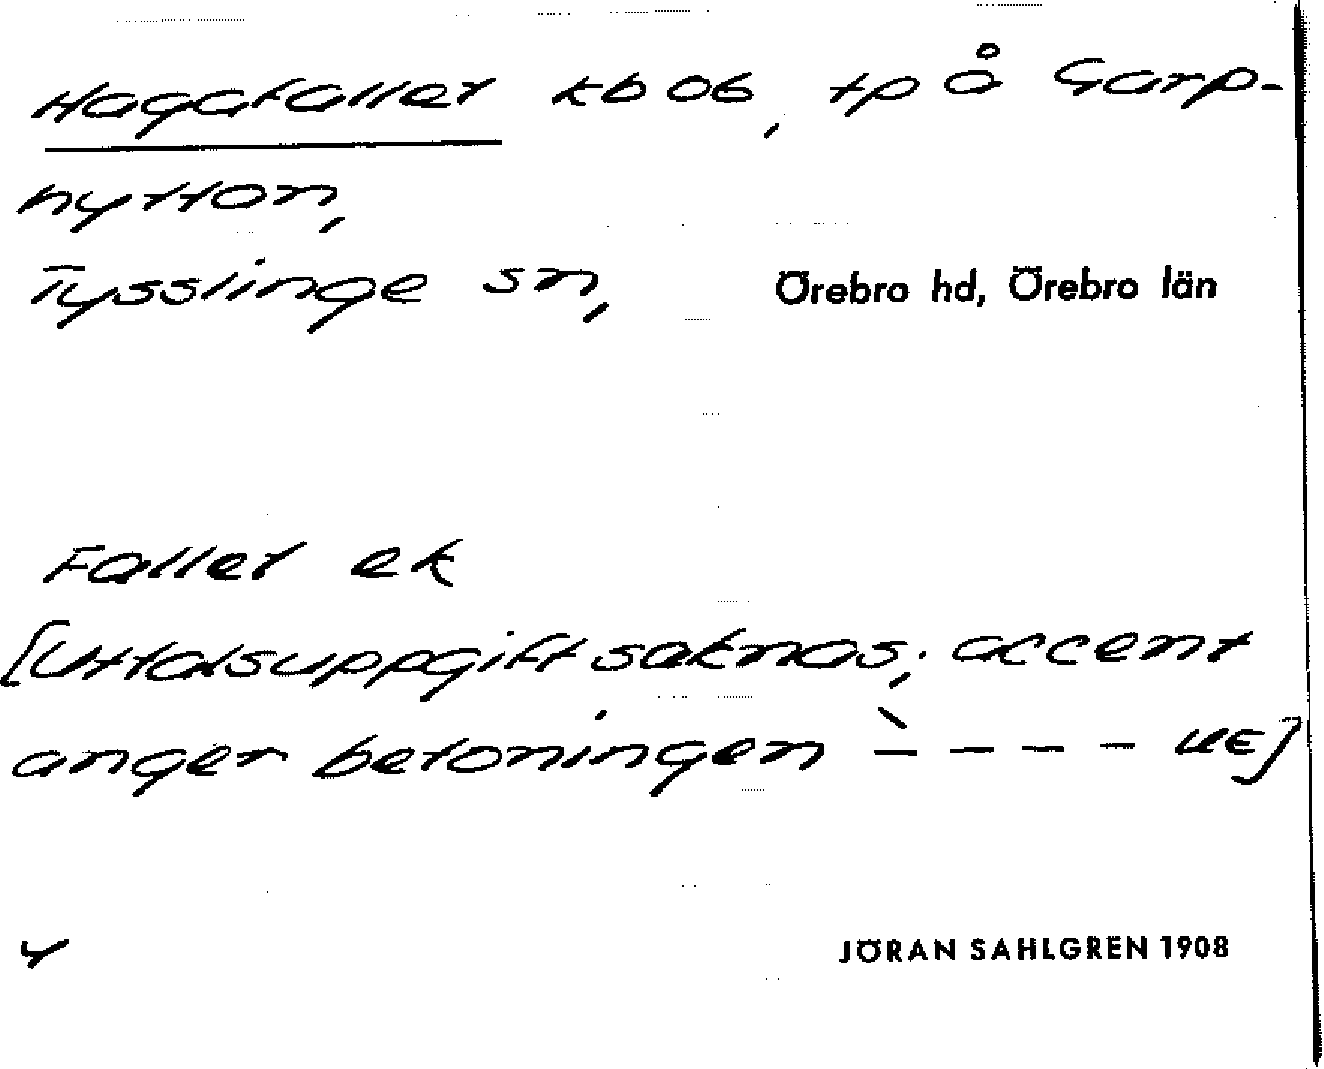 Hagafallet kb 06, tp å Garp-
hyttan,
Tysslinge sn, Örebro hd, Örebro län
Fallet ek
[Uttalsuppgift saknas; accent
anger betoningen ̀– – – – UE]
JÖRAN SAHLGREN 1908